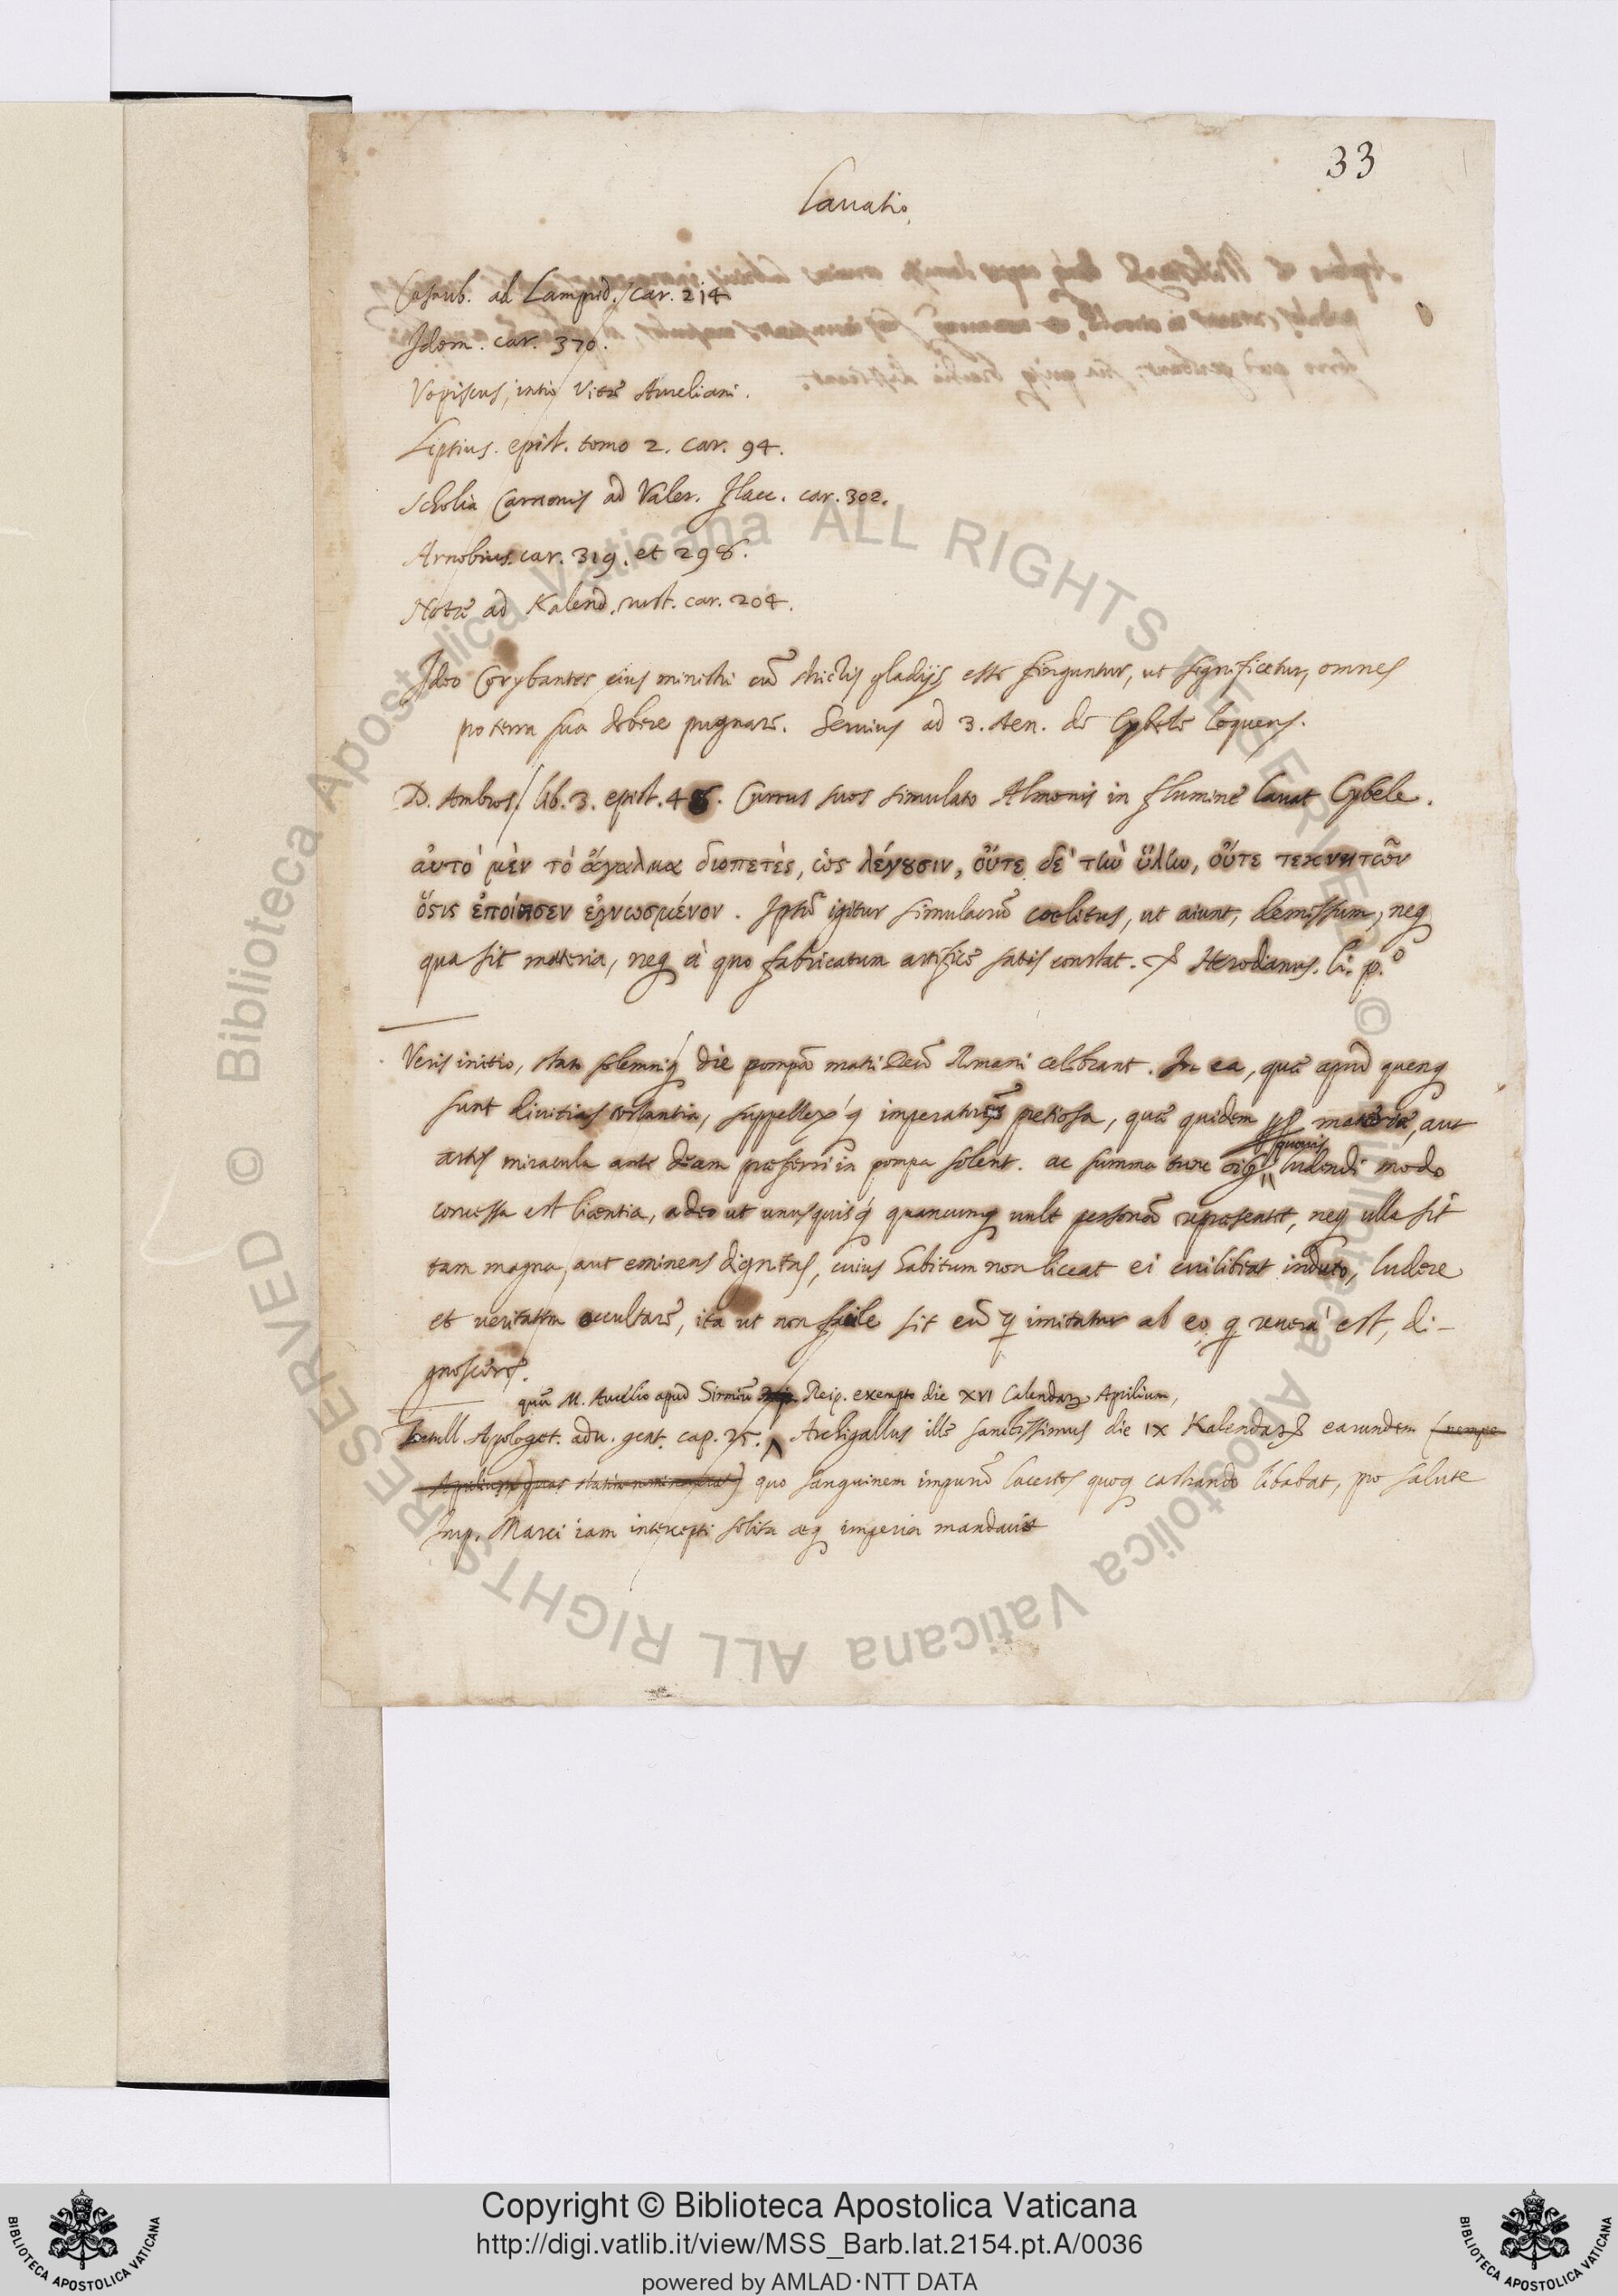 33
Lavatio.
Casaub. ad Lamprid. car. 214
Idem. car. 370.
Vopiscus, initio vitæ Aureliani.
Lipsius. epist. tomo 2. car. 94.
Scholia Carrionis ad Valer. Flacc. car. 302.
Arnobius. car. 319. et 298.
Notæ ad Kalend. rust. car. 204.
Ideo Corybantes eius ministri cū strictis gladijs esse finguntur, ut significetur, omnes
pro terra sua debere pugnare. Servius ad 3. Aen. de Cybele loquens.
D. Ambros. lib. 3. epist. 4 . Currus suos simulato Almonis in flumine lavat Cybele.
αὐτὸ μὲν τὸ ἄγαλμα διοπετὲς, ὡς λέγουσιν, οὔτε δὲ τὴν ὕλην, οὔτε τεχνητῶν
ὅστις ἐποίησεν ἐγνωσμένον. Ipsū igitur simulacrū coelitus, ut aiunt, demissum, neq
qua sit materia, neq à quo fabricatum artifice satis constat. Herodianus. li. p.º
Veris initio, stato solemniq die pompā matri Deū Romani celebrant. In ea, quæ apud quenq
sunt divitias testantia, suppellex'q imperatoria pretiosa, quæ quidem materiæ, aut
artis miracula ante deam præferri in pompa solent. ac summa tunc oib9 quovis ludendi modo
concessa est licentia, adeo ut unusquisq quancunq vult personā repræsentet, neq ulla sit
tam magna, aut eminens dignitas, cuius habitum non liceat ei cui libeat induto, ludere
et veritatem occultare, ita ut non facile sit eū q imitatur ab eo q revera est, di-
gnoscere.
quū M. Aurelio apud Sirmiū Reip. exempto die XVI Calendarꝝ Aprilium,
Tertull. Apologet. adv. gent. cap. 25. ^ Archigallus ille sanctissimus die IX Kalendarꝝ earundem (nempe
Aprilium) quo sanguinem impurū lacertos quoq castrando libabat, pro salute
Imp. Marci iam intercepti solita æq imperia mandavit
© Biblioteca Apostolica Vaticana ALL RIGHTS RESERVED © Biblioteca Apostolica Vaticana ALL RIGHTS RESERVED
BIBLIOTECA APOSTOLICA VATICANA
Copyright © Biblioteca Apostolica Vaticana
http://digi.vatlib.it/view/MSS_Barb.lat.2154.pt.A/0036
powered by AMLAD·NTT DATA
BIBLIOTECA APOSTOLICA VATICANA